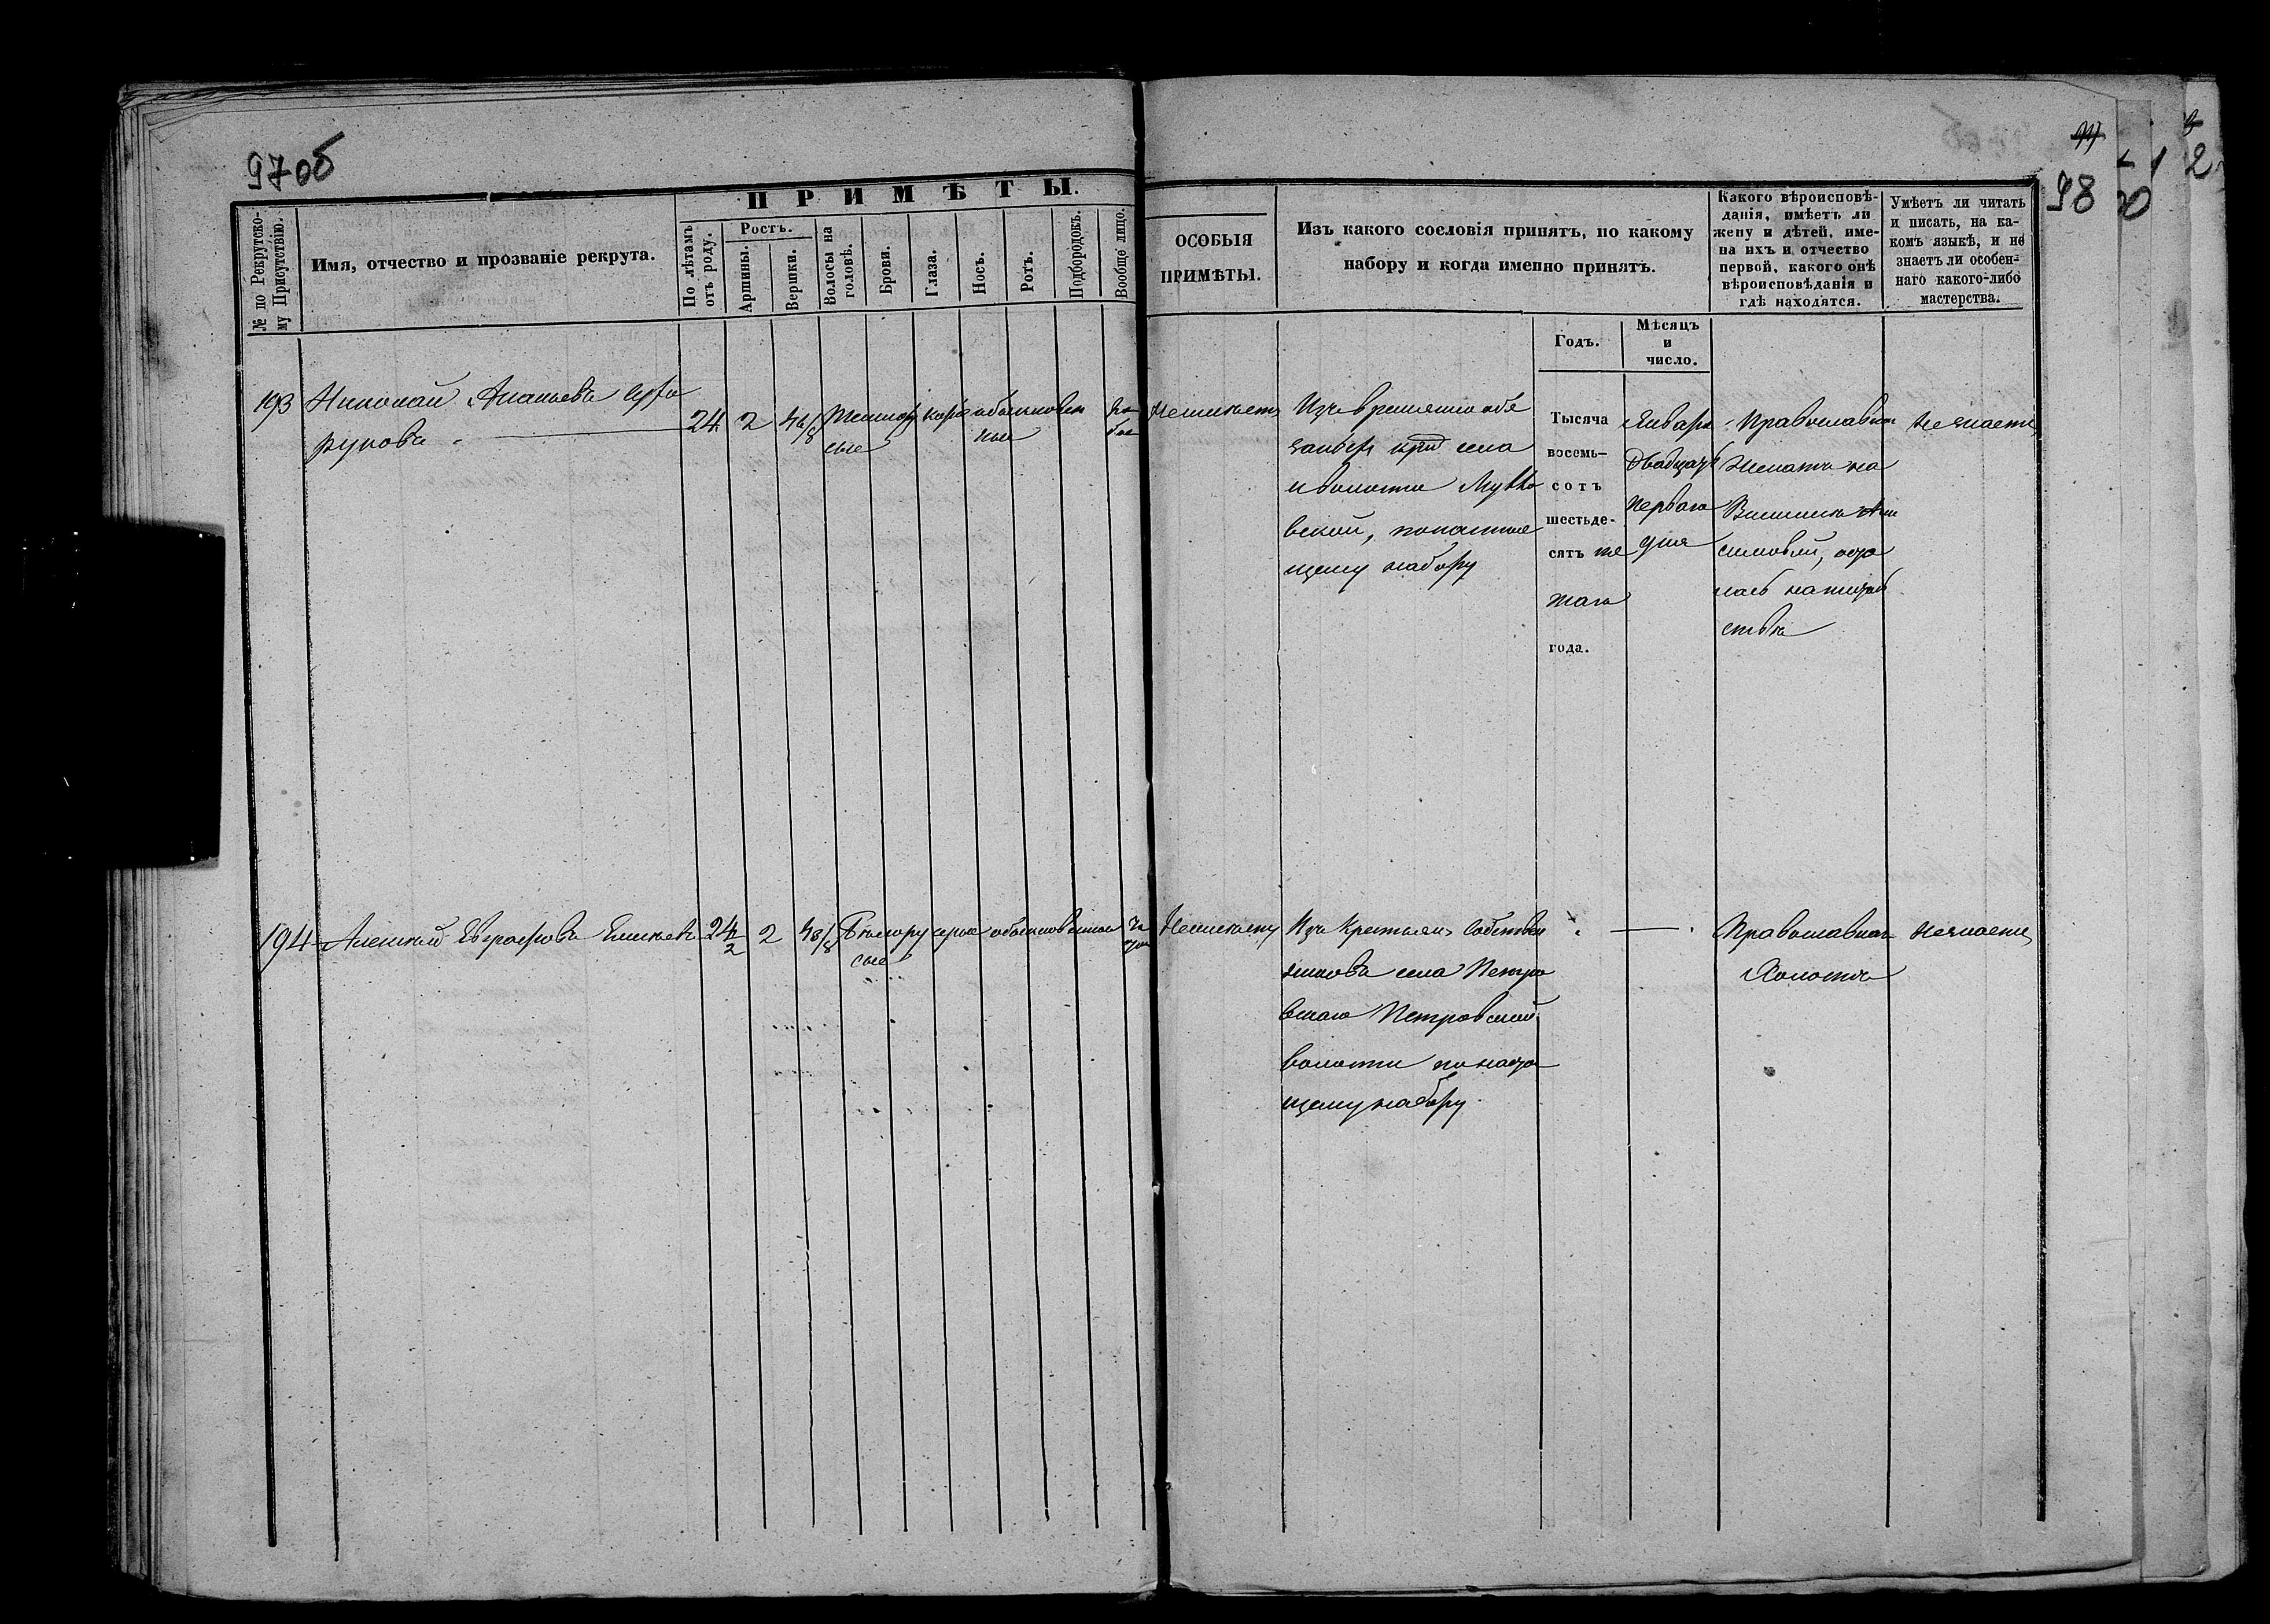 97об
98
№ по Рекрутско-
му Присутствію.
Имя, отчество и прозваніе рекрута.
ПРИМѢТЫ.
По лѣтамъ
отъ роду.
Ростъ.
Аршины.
Вершки.
Волосы на
головѣ.
Брови.
Глаза.
Носъ.
Ротъ.
Подбородокъ.
Вообще лицо.
ОСОБЫЯ
ПРИМѢТЫ.
Изъ какого сословія принятъ, по какому
набору и когда именно принятъ.
Какого вѣроисповѣ-
данія, имѣетъ ли
жену и дѣтей, име-
на ихъ и отчество
первой, какого онѣ
вѣроисповѣданія и
гдѣ находятся.
Умѣетъ ли читать
и писать, на ка-
комъ языкѣ, и не
знаетъ ли особен-
наго какого-либо
мастерства.
Годъ.
Мѣсяцъ
и
число.
193
Николай Ананьевъ
руковъ
24 2 4 6/8
Темнору
сые
каріе
обыкновен
ные
ря
бое
Неимѣетъ
Изъ временно обя
занныхъ села
и волости
вской, понастоя
щему набору
Тысяча
восемь-
сотъ
шестьде-
сятъ пя
таго
года.
Января
Двадцать
перваго
дня
Православнаго
Женатъ на
симовой, оста
лась
ства
Незнаетъ
194
Алексѣй Евграфовъ
24 1/2 2 4 3/8
Бѣлору
сые
серые обыкновенное
чи
стое
Неимѣетъ
Изъ Крестьянъ Собствен
никовъ села Петро
вскаго Петровской
волости понастоя
щему набору
Православнаго
Холостъ
Незнаетъ